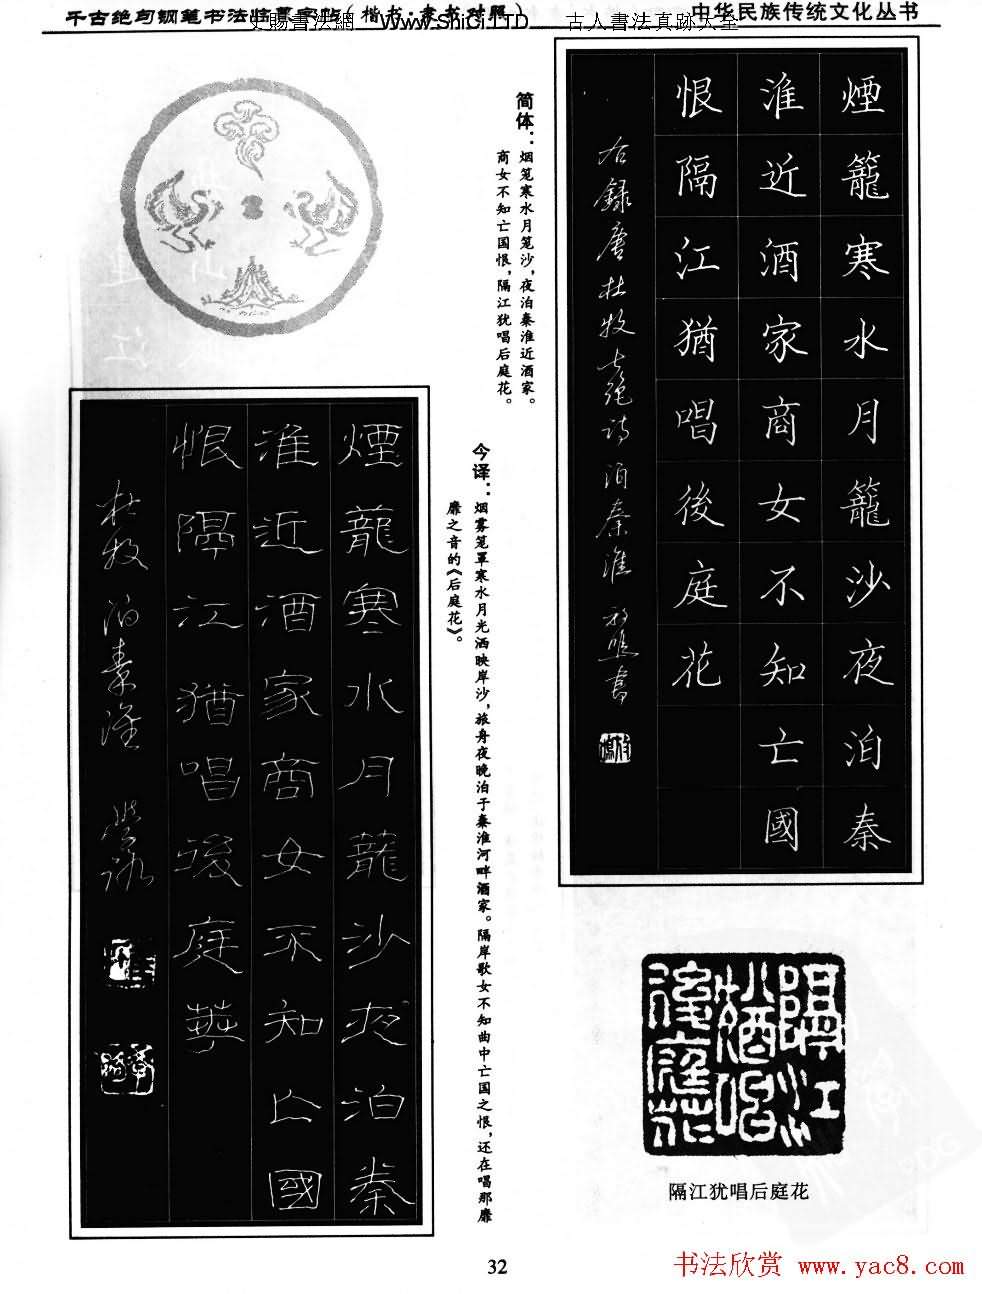 千古绝句钢笔书法临摹字帖(楷书·隶书对照)
中华民族传统文化丛书
史賜書法網 www.ShiCi.LTD 古人書法真跡大全
煙籠寒水月籠沙夜泊秦
淮近酒家商女不知亡國
恨隔江猶唱後庭花
右錄唐杜牧七绝詩泊秦淮
书
简体：烟笼寒水月笼沙，夜泊秦淮近酒家。
商女不知亡国恨，隔江犹唱后庭花。
今译：烟雾笼罩寒水月光洒映岸沙，旅舟夜晚泊于秦淮河畔酒家。隔岸歌女不知曲中亡国之恨，还在唱那靡
靡之音的《后庭花》。
煙蘢寒水月蘢沙夜泊秦
淮近酒家商女不知亡國
恨隔江猶唱後庭華
杜牧泊秦淮
隔江
猶唱
後庭花
隔江犹唱后庭花
32
书法欣赏 www.yac8.com